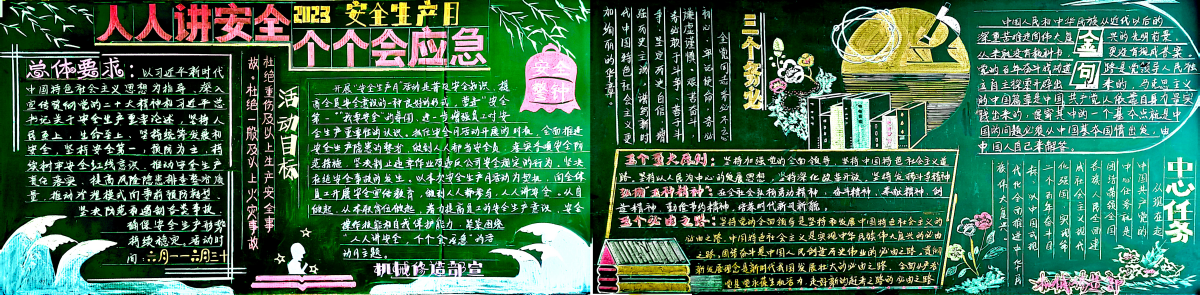 人人讲安全
2023 安全生产月
个个会应急
总体要求：以习近平新时代
中国特色社会主义思想为指导，深入
宣传贯彻党的二十大精神和习近平总
书记关于安全生产重要论述，坚持人
民至上、生命至上，坚持统筹发展和
安全，坚持安全第一，预防为主，树
牢安全红线意识，推动安全生产
责任落实，提高风险隐患排查整治质
量，推动治理模式向事前预防转型，
坚决防范和遏制各类事故，
确保安全生产形势
持续稳定。活动时
间：六月一一六月三十
活动目标
杜绝重伤及以上生产安全事
故，杜绝一般及以上火灾事故
安全
警钟
开展"安全生产月"活动是普及安全知识，提
高全员安全意识的一种良好的形式，营造"安全
第一"
安全生产重要性的认识，抓住安全月活动开展的时机，全面推进
决制止违章作业及违反公司安全规定的行为，坚决
杜绝安全事故的发生。以本次安全生产月活动为契机，向全体
员工开展安全宣传教育，做到人人都参与，人人讲安全，从自
做起，从本职岗位做起，着力提高员工的安全生产意识，安全
操作技能和自我保护能力，营造围绕
"人人讲安全，个个会应急"的活
动月主题。
机械修造部宣
三个务必
全党同志务必不忘
初心、牢记使命，务必
谦虚谨慎、艰苦奋斗，
务必敢于斗争、善于斗
争，坚定历史自信，增
强历史主动，谱写新时
代中国特色社会主义更
加绚丽的华章。
金句
中国人民和中华民族从近代以后的
深重苦难走向伟大复兴的光明前景，
从来就没有教科书，更没有现成答案。
党的百年奋斗成功道路是党领导人民独
立自主探索开辟出来的，马克思主义
的中国篇章是中国共产党人依靠自身力量实
践出来的，贯穿其中的一个基本点就是中
国的问题必须从中国基本国情出发，由
中国人自己来解答。
五个重大原则：坚持和加强党的全面领导，坚持中国特色社会主义道
路，坚持以人民为中心的发展思想，坚持深化改革开放，坚持发扬斗争精神
在全社会弘扬劳动精神、奋斗精神、奉献精神、创
造精神、勤俭节约精神，培养时代新风新貌
五个必由之路：坚持党的全面领导是坚持和发展中国特色社会主义的
必由之路，中国特色社会主义是实现中华民族伟大复兴的必由
之路，团结奋斗是中国人民创造历史伟业的必由之路，贯彻
新发展理念是新时代我国发展壮大的必由之路，全面从严治
党是党永葆生机活力、走好新的赶考之路的必由之路
中心任务
从现在起，
中国共产党的
中心任务就是
团结带领全国
各族人民全面建
成社会主义现
代化强国、实现第
二个百年奋斗目
标，以中国式现
代化全面推进中华民
族伟大复兴。